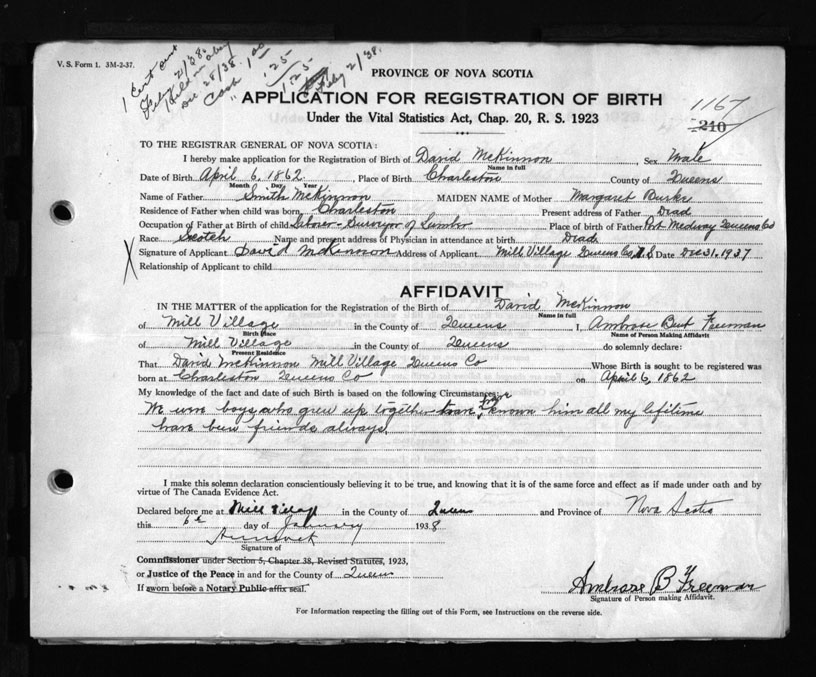 V. S. Form 1. 3M-2-37.
1 Cert sent
Feby 21/38.
Held in abey
Dec 28/38.
Cash 1.00
" .25
1.25
Feby 2/38.
PROVINCE OF NOVA SCOTIA
APPLICATION FOR REGISTRATION OF BIRTH
Under the Vital Statistics Act, Chap. 20, R. S. 1923
1167
210
TO THE REGISTRAR GENERAL OF NOVA SCOTIA:
I hereby make application for the Registration of Birth of David McKinnon Sex Male
Name in full
Date of Birth April 6, 1862 Place of Birth Charleston County of Queens
Month Day Year
Name of Father Smith McKinnon MAIDEN NAME of Mother Margaret Burke
Residence of Father when child was born Charleston Present address of Father Dead
Occupation of Father at Birth of child Laborer - Surveyor of Lumber Place of birth of Father Port Medway Queens Co
Race Scotch Name and present address of Physician in attendance at birth Dead
X Signature of Applicant David McKinnon Address of Applicant Mill Village Queens Co, N.S. Date Dec 31, 1937
Relationship of Applicant to child
AFFIDAVIT
IN THE MATTER of the application for the Registration of the Birth of David McKinnon
Name in full
of Mill Village in the County of Queens I, Ambrose Burt Freeman
Birth Place Name of Person Making Affidavit
of Mill Village in the County of Queens do solemnly declare:
Present Residence
That David McKinnon Mill Village Queens Co Whose Birth is sought to be registered was
born at Charleston Queens Co on April 6, 1862
My knowledge of the fact and date of such Birth is based on the following Circumstances:
We were boys who grew up together have known him all my lifetime
have been friends always.
I make this solemn declaration conscientiously believing it to be true, and knowing that it is of the same force and effect as if made under oath and by
virtue of The Canada Evidence Act.
Declared before me at Mill Village in the County of Queens and Province of Nova Scotia
this 6th day of January 1938
Signature of
Commissioner under Section 5, Chapter 38, Revised Statutes, 1923,
or Justice of the Peace in and for the County of Queens
If sworn before a Notary Public affix seal.
Ambrose B Freeman
Signature of Person making Affidavit.
For Information respecting the filling out of this Form, see Instructions on the reverse side.